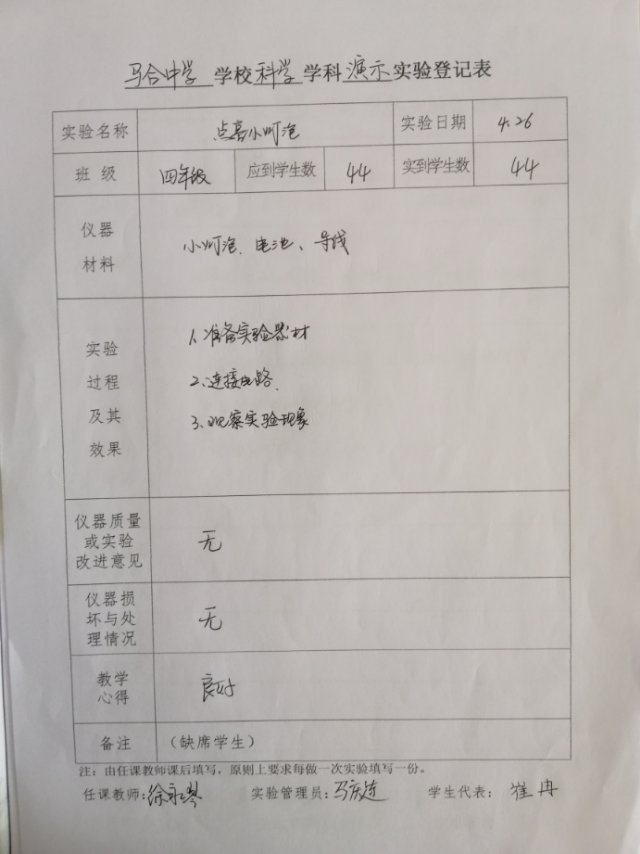 马合中学 学校 科学 学科 演示 实验登记表
实验名称 点亮小灯泡 实验日期 4.26
班 级 四年级 应到学生数 44 实到学生数 44
仪器
材料
小灯泡、电池、导线
实验
过程
及其
效果
1.准备实验器材
2.连接电路.
3.观察实验现象
仪器质量
或实验
改进意见
无
仪器损
坏与处
理情况
无
教学
心得
良好
备注 (缺席学生)
注：由任课教师课后填写，原则上要求每做一次实验填写一份。
任课教师: 实验管理员: 学生代表: 崔冉